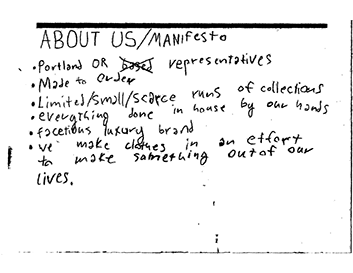 ABOUT US/MANIFESTO
• Portland OR based representatives
• Made to order
• Limited/small/scarce runs of collections
• everything done in house by our hands
• facetious luxury brand
• ve make clothes in an effort
to make something out of our
lives.